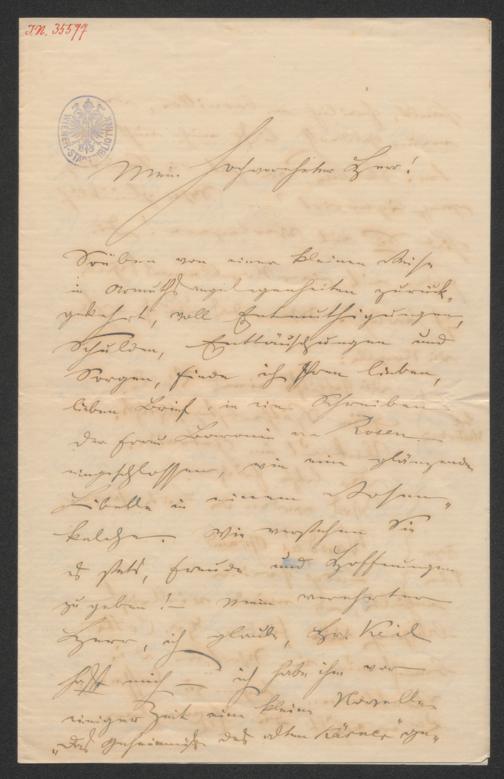 J.N. 35599
WIENER-STADTBIBLIOTHEK
Mein hochverehrter Herr!
Soeben von einer kleinen Reise
in Armuths angelegenheiten zurück-
gekehrt, voll Entmuthigungen,
Schulden, Enttäuschungen und
Sorgen, finde ich Ihren lieben,
lieben Brief, in ein Schreiben
der Frau Baronin
eingeschlossen, wie eine glänzende
Libelle in einem Rosen-
kelche. Wie verstehen Sie
es stets, Freude und Hoffnungen
zu geben! – Mein verehrter
Herr, ich glaube, Hr. Keil
haßt mich – ich habe ihm vor
einiger Zeit eine kleine Novelle
„Das Geheimniß des alten ge-